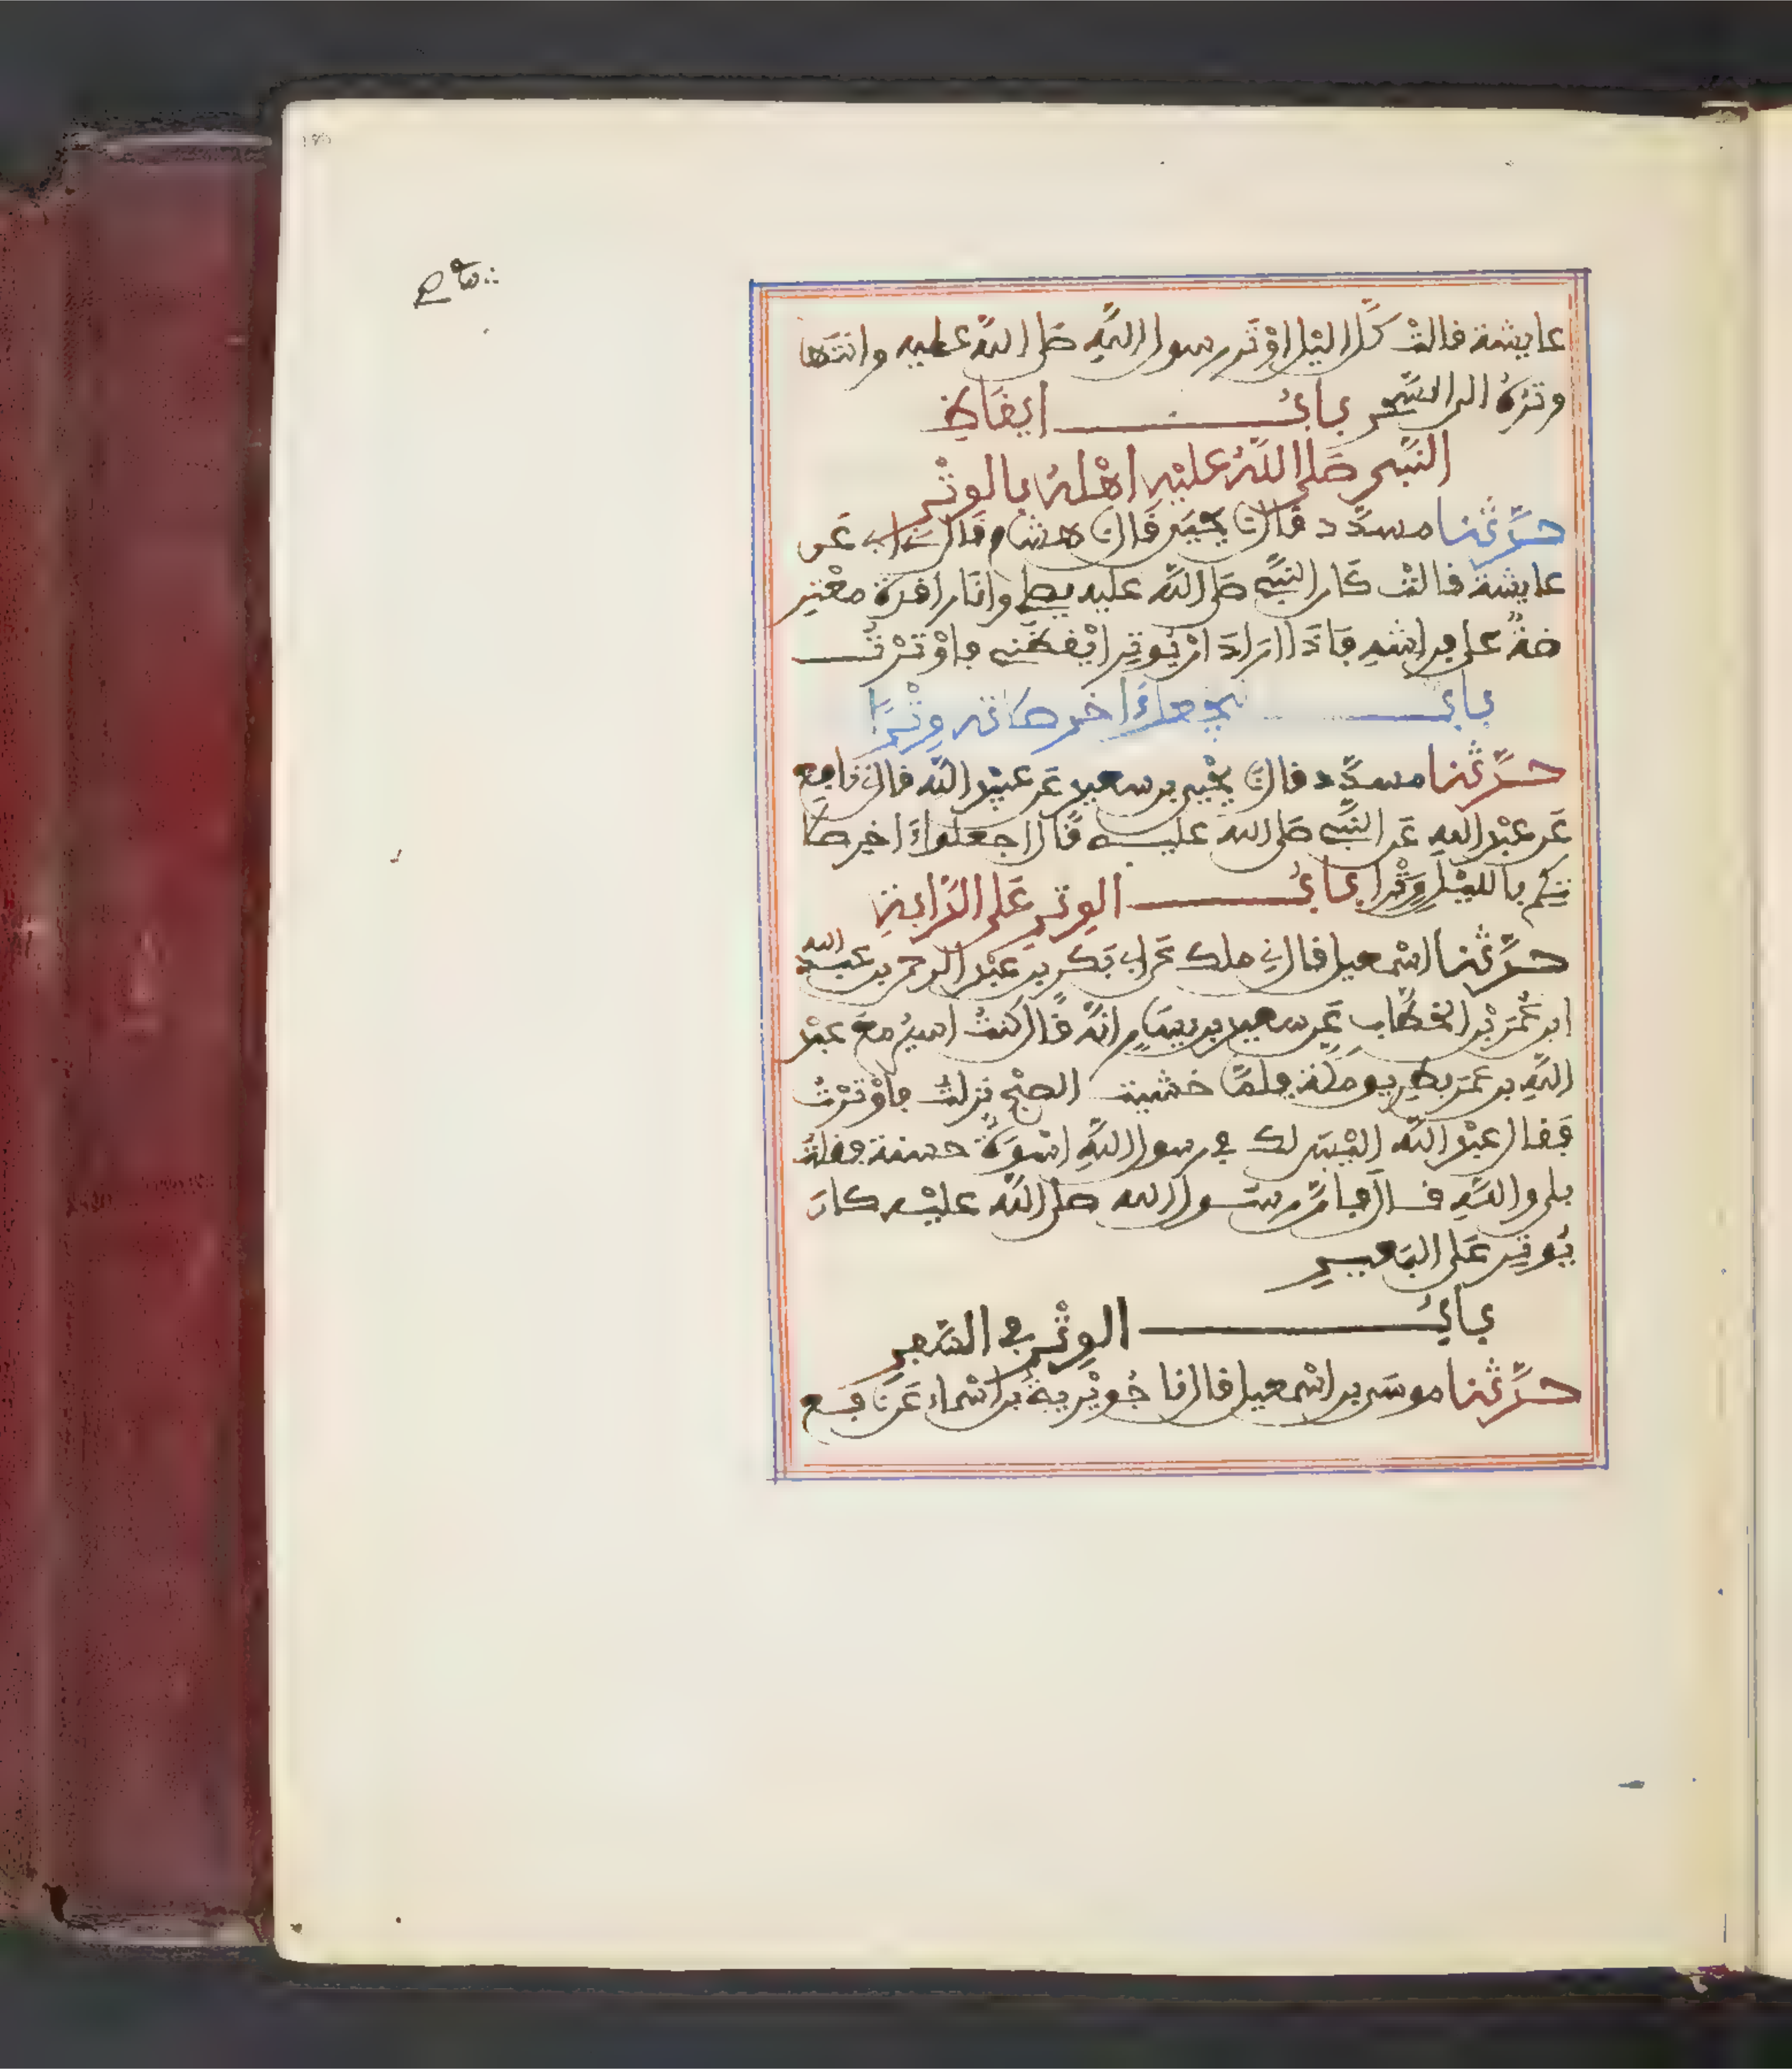 عايشة قالت كُلَّ اليْلِ اوْتَر رسول اللهِ صلى اللهُ عليه وانتها
وترهُ الى السَّحر بابُ ايقاظِ
النَّبي صَلى اللهُ عليْهِ اهْلهُ بالوتْرِ
حدَّثنا مسدَّد قال نا يحيى قال نا هشام قال نا ابى عن
عايشة قالتْ كان النبيُّ صلى اللهُ عليه يصلي وانا راقدة معْترِ
ضةٌ على فراشهِ فاذا ارادَ انْ يُوتِر ايْقظنى فاوْترْتُ
بابُ ليجعل اَخر صلاته وِتْرًا
حدَّثنا مسدَّد قال نا يحْيى بن سعيد عن عبيْد الله قال نى نافع
عَن عبْد اللهِ عَن النبيِّ صَلى الله عليه قال اجعلوا ءاخر صلا
تكم بالليْلِ وِتْرا بابُ الوتر على الدَّابةِ
حدَّثنا اسْمعيل قال نى ملك عن ابى بَكر بن عبْد الرحمن بن عبد الله
ابن عُمَر بْن الخطَّاب عَن سعيد بن يسَارٍ انهُ قال كنتُ اسيرُ معَ عبْد
اللهِ بن عمَر بطريو مكَّة فلمَّا خشيت الصبْح نزلتُ فاوْترْتُ
فقال عبْد الله اليْسَ لك في رسول اللهِ اسْوَةٌ حسنة فقلتُ
بلى واللهِ قال فانَّ رسول الله صلى الله عليْه كانَ
يُوتِر عَلى البَعيرِ
بابُ الوِتْر في السَّفرِ
حدَّثنا موسَى بن اسْمعيل قال نا جُويْرية بن اسْماء عَن نافع